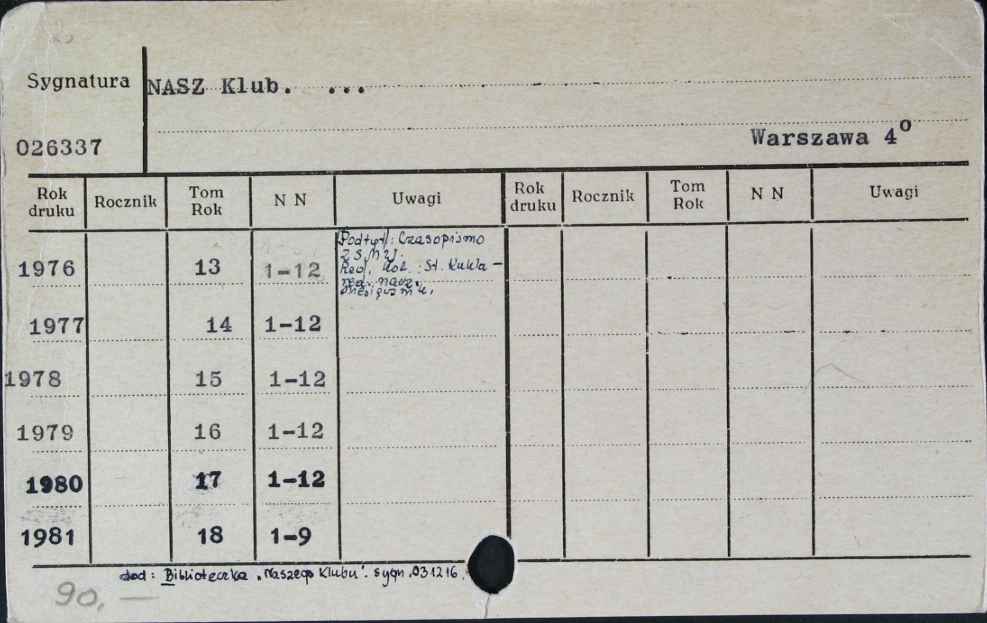 Sygnatura
NASZ Klub. ...
026337
Warszawa 4°
Rok druku Rocznik Tom Rok N N Uwagi Rok druku Rocznik Tom Rok N N Uwagi
Podtyt: Czasopismo
1976 13 1-12 Red. kol. : St. Kukla-
miesięcznik.
1977 14 1-12
1978 15 1-12
1979 16 1-12
1980 17 1-12
1981 18 1-9
dod: Biblioteczka „Naszego Klubu". sygn. 031216.
90,—